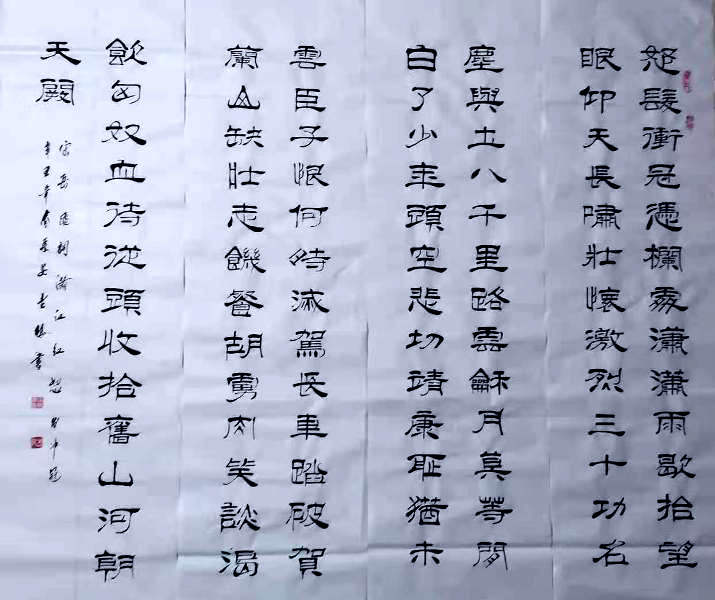 怒髮衝冠憑欄處瀟瀟雨歇抬望
眼仰天長嘯壯懷激烈三十功名
塵與土八千里路雲龢月莫等閒
白了少年頭空悲切靖康恥猶未
雪臣子恨何時滅駕長車踏破賀
蘭山缺壯志饑餐胡虜肉笑談渴
飲匈奴血待從頭收拾舊山河朝
天闕
宋岳飛詞滿江紅
辛丑年書